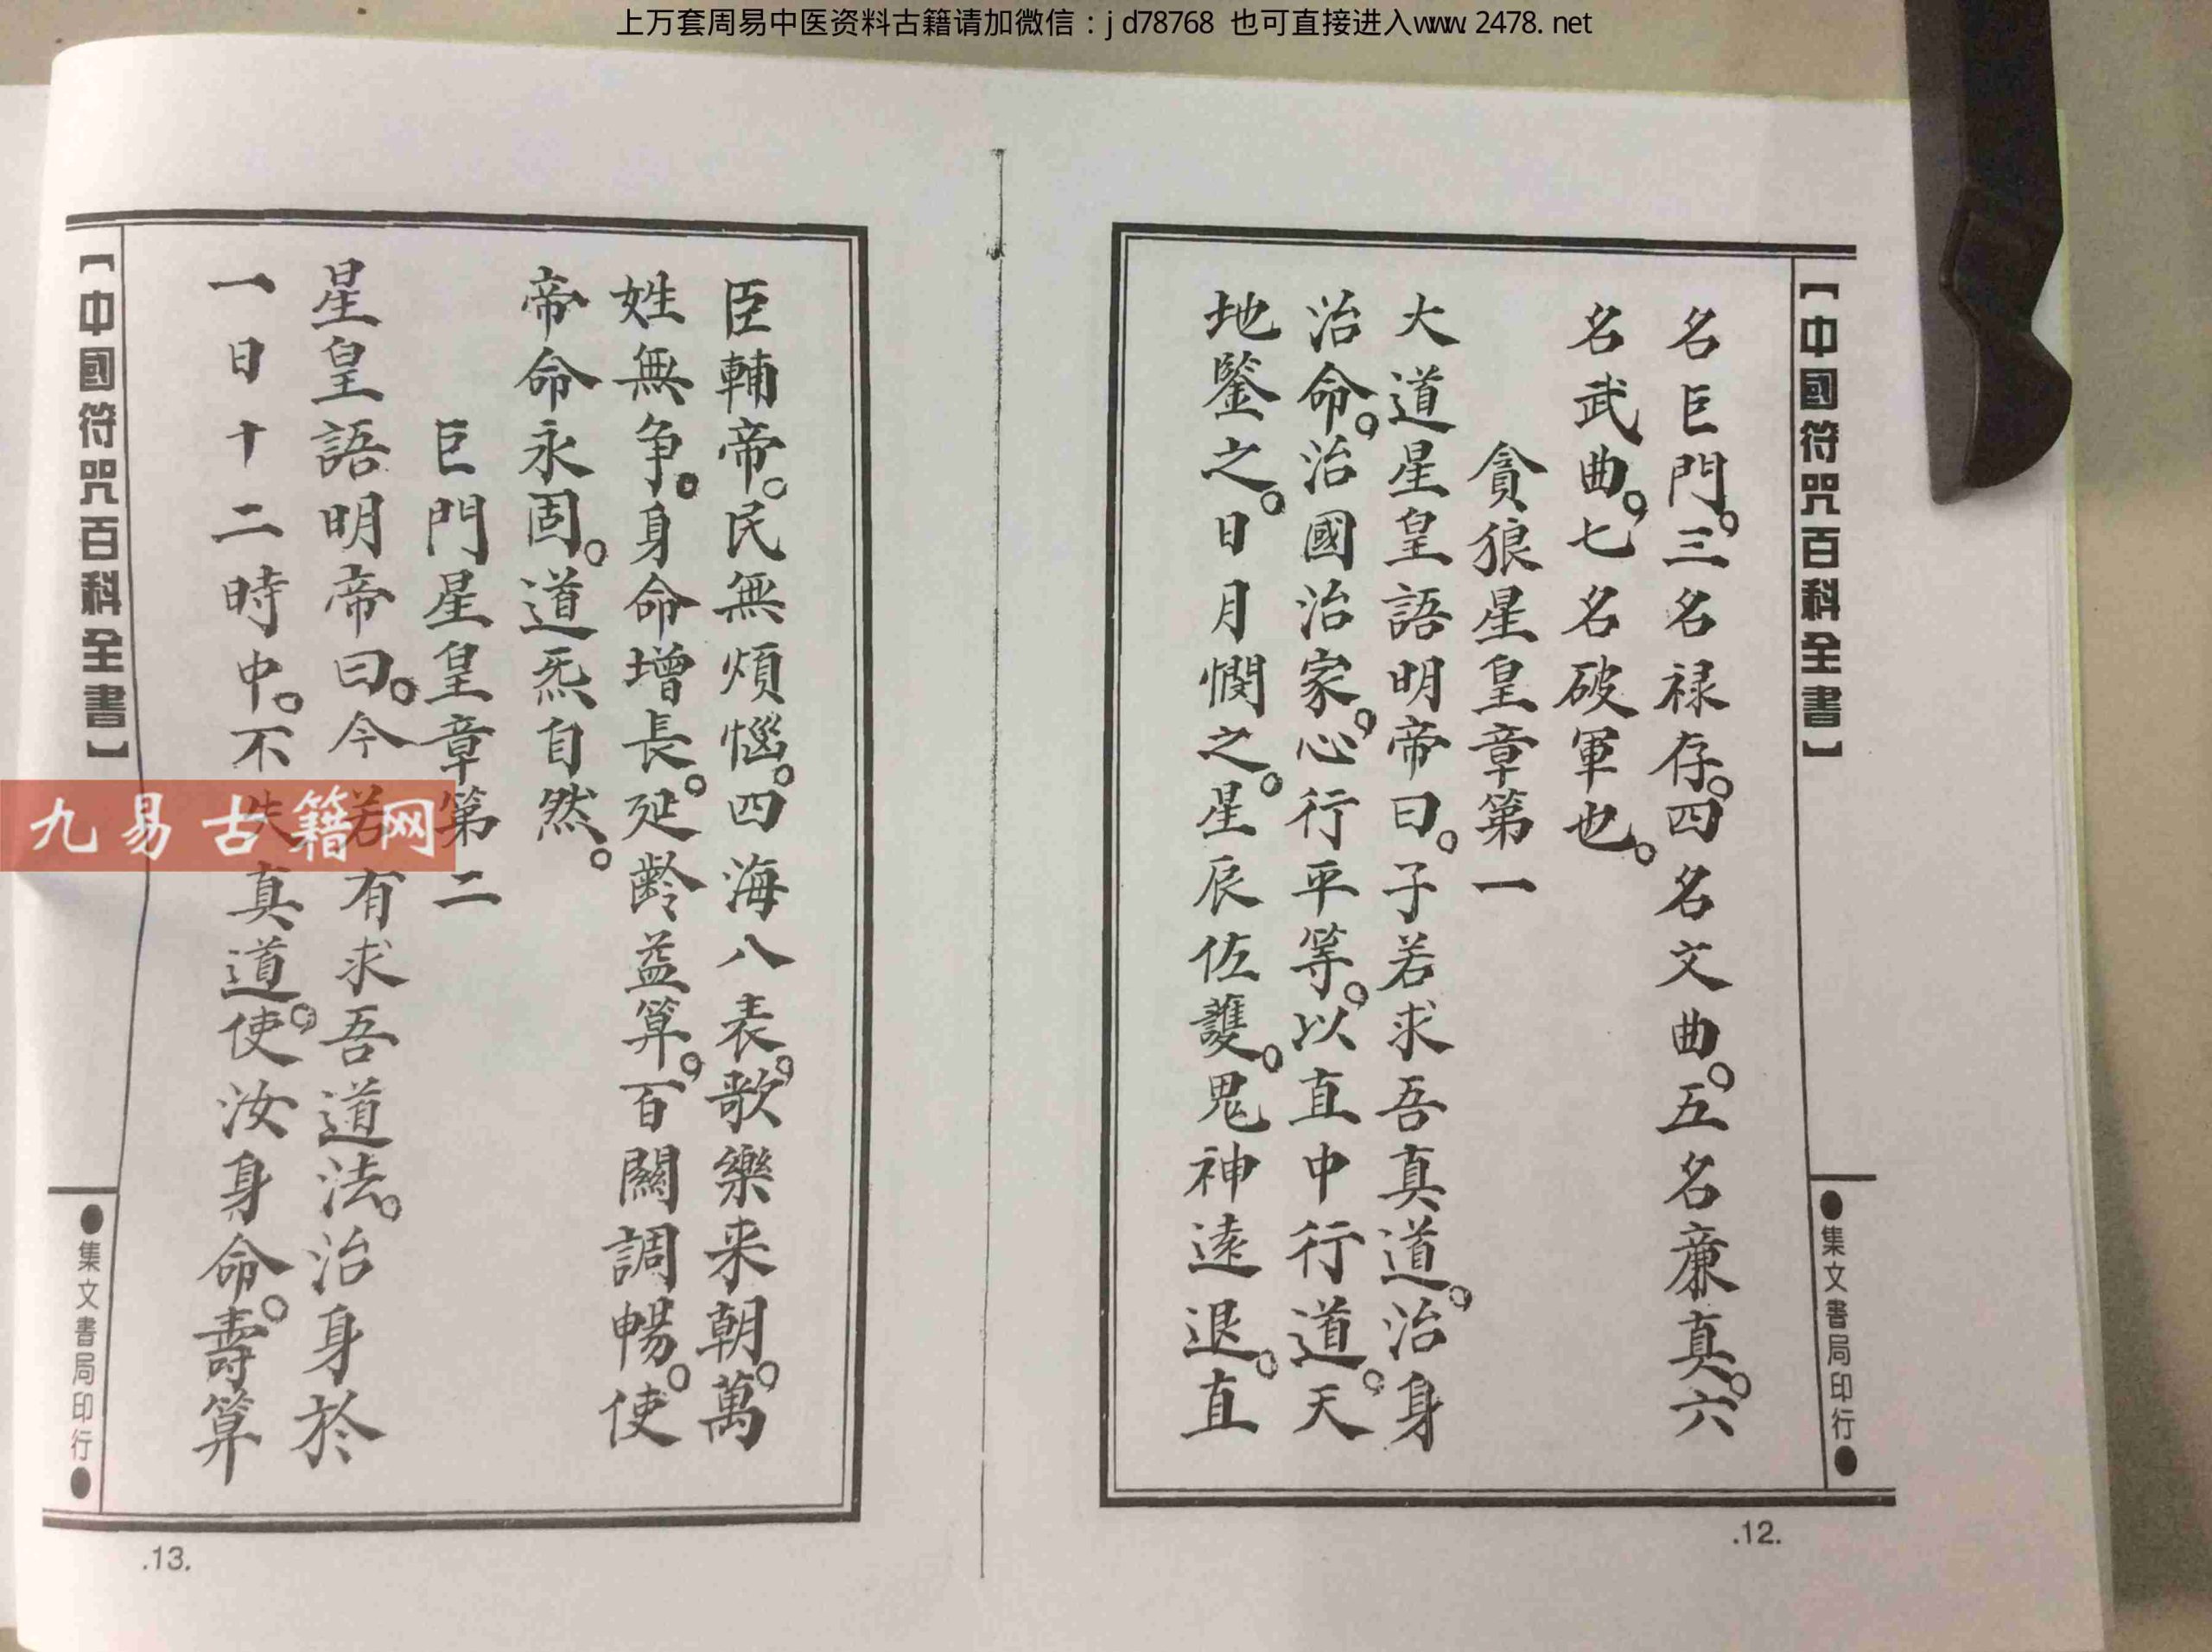 上万套周易中医资料古籍请加微信：jd78768 也可直接进入www.2478.net
【中國符咒百科全書】
●集文書局印行●
名巨門。三名禄存。四名文曲。五名亷真。六
名武曲。七名破軍也。
貪狼星皇章第一
大道星皇語明帝曰。子若求吾真道。治身
治命。治國治家。心行平等。以直中行道。天
地鑒之。日月憫之。星辰佐護。鬼神遠退。直
.12.
臣輔帝。民無煩惱。四海八表。歌樂来朝。萬
姓無争。身命增長。延齡益算。百關調暢。使
帝命永固。道炁自然。
巨門星皇章第二
星皇語明帝曰。今若有求吾道法。治身於
一日十二時中。不失真道。使汝身命。壽算
【中國符咒百科全書】
●集文書局印行●
.13.
九易古籍网